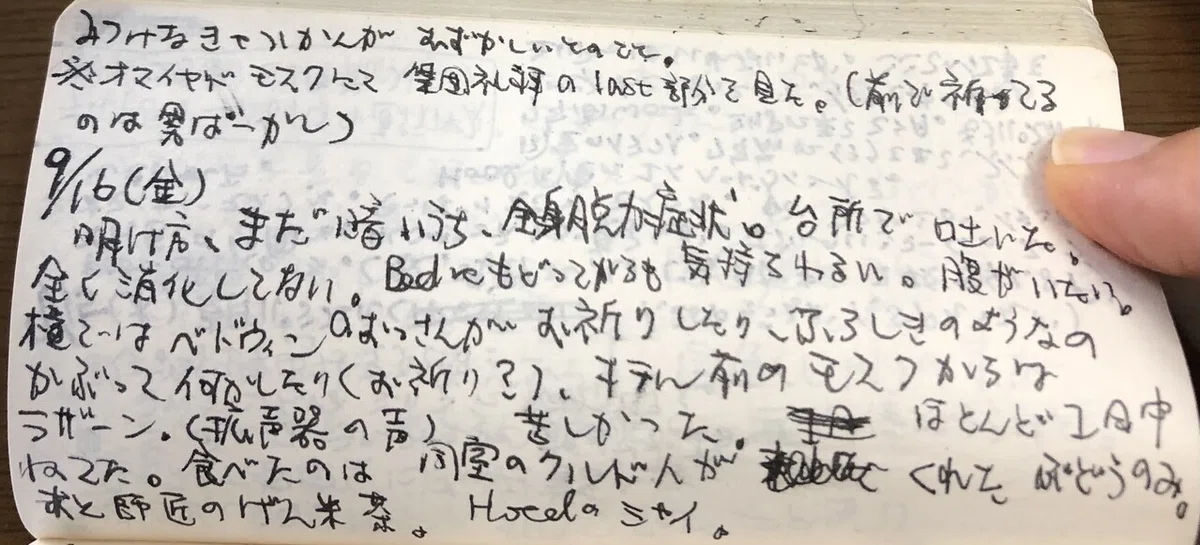 みつけなきゃいかんが むずかしいとのこと。
※オマイヤドモスクにて 集団礼拝の last 部分で見た。(前で祈ってる
のは男ばーかし)
9/16(金)
明け方、まだ暗いうち、全身脱力症状。台所で 吐いた。
全く消化してない。Bedにもどってからも 気持ちわるい。腹がいたい。
横では ベドウィンのおっさんが お祈りしたり、ふろしきのようなの
かぶって何かしたり(お祈り?)、 前のモスクからは
アザーン。(拡声器の声) 苦しかった。 ほとんど1日中
ねてた。食べたのは 同室のクルド人が くれた ぶどうのみ。
あと師匠のげん米茶。Hotelのシャイ。